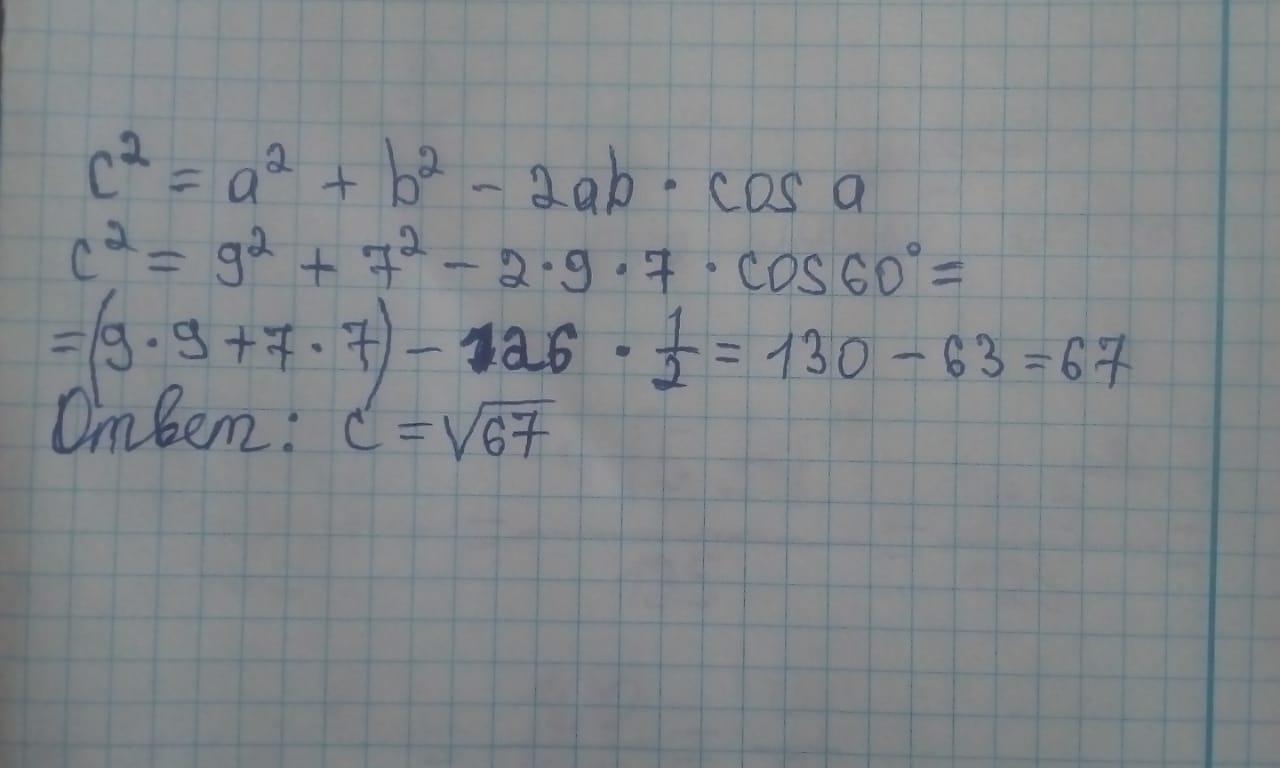 c² = a² + b² - 2ab · cos a
c² = 9² + 7² - 2·9·7 · cos 60° =
= (9·9 + 7·7) - 126 · 1/2 = 130 - 63 = 67
Ответ: c = √67